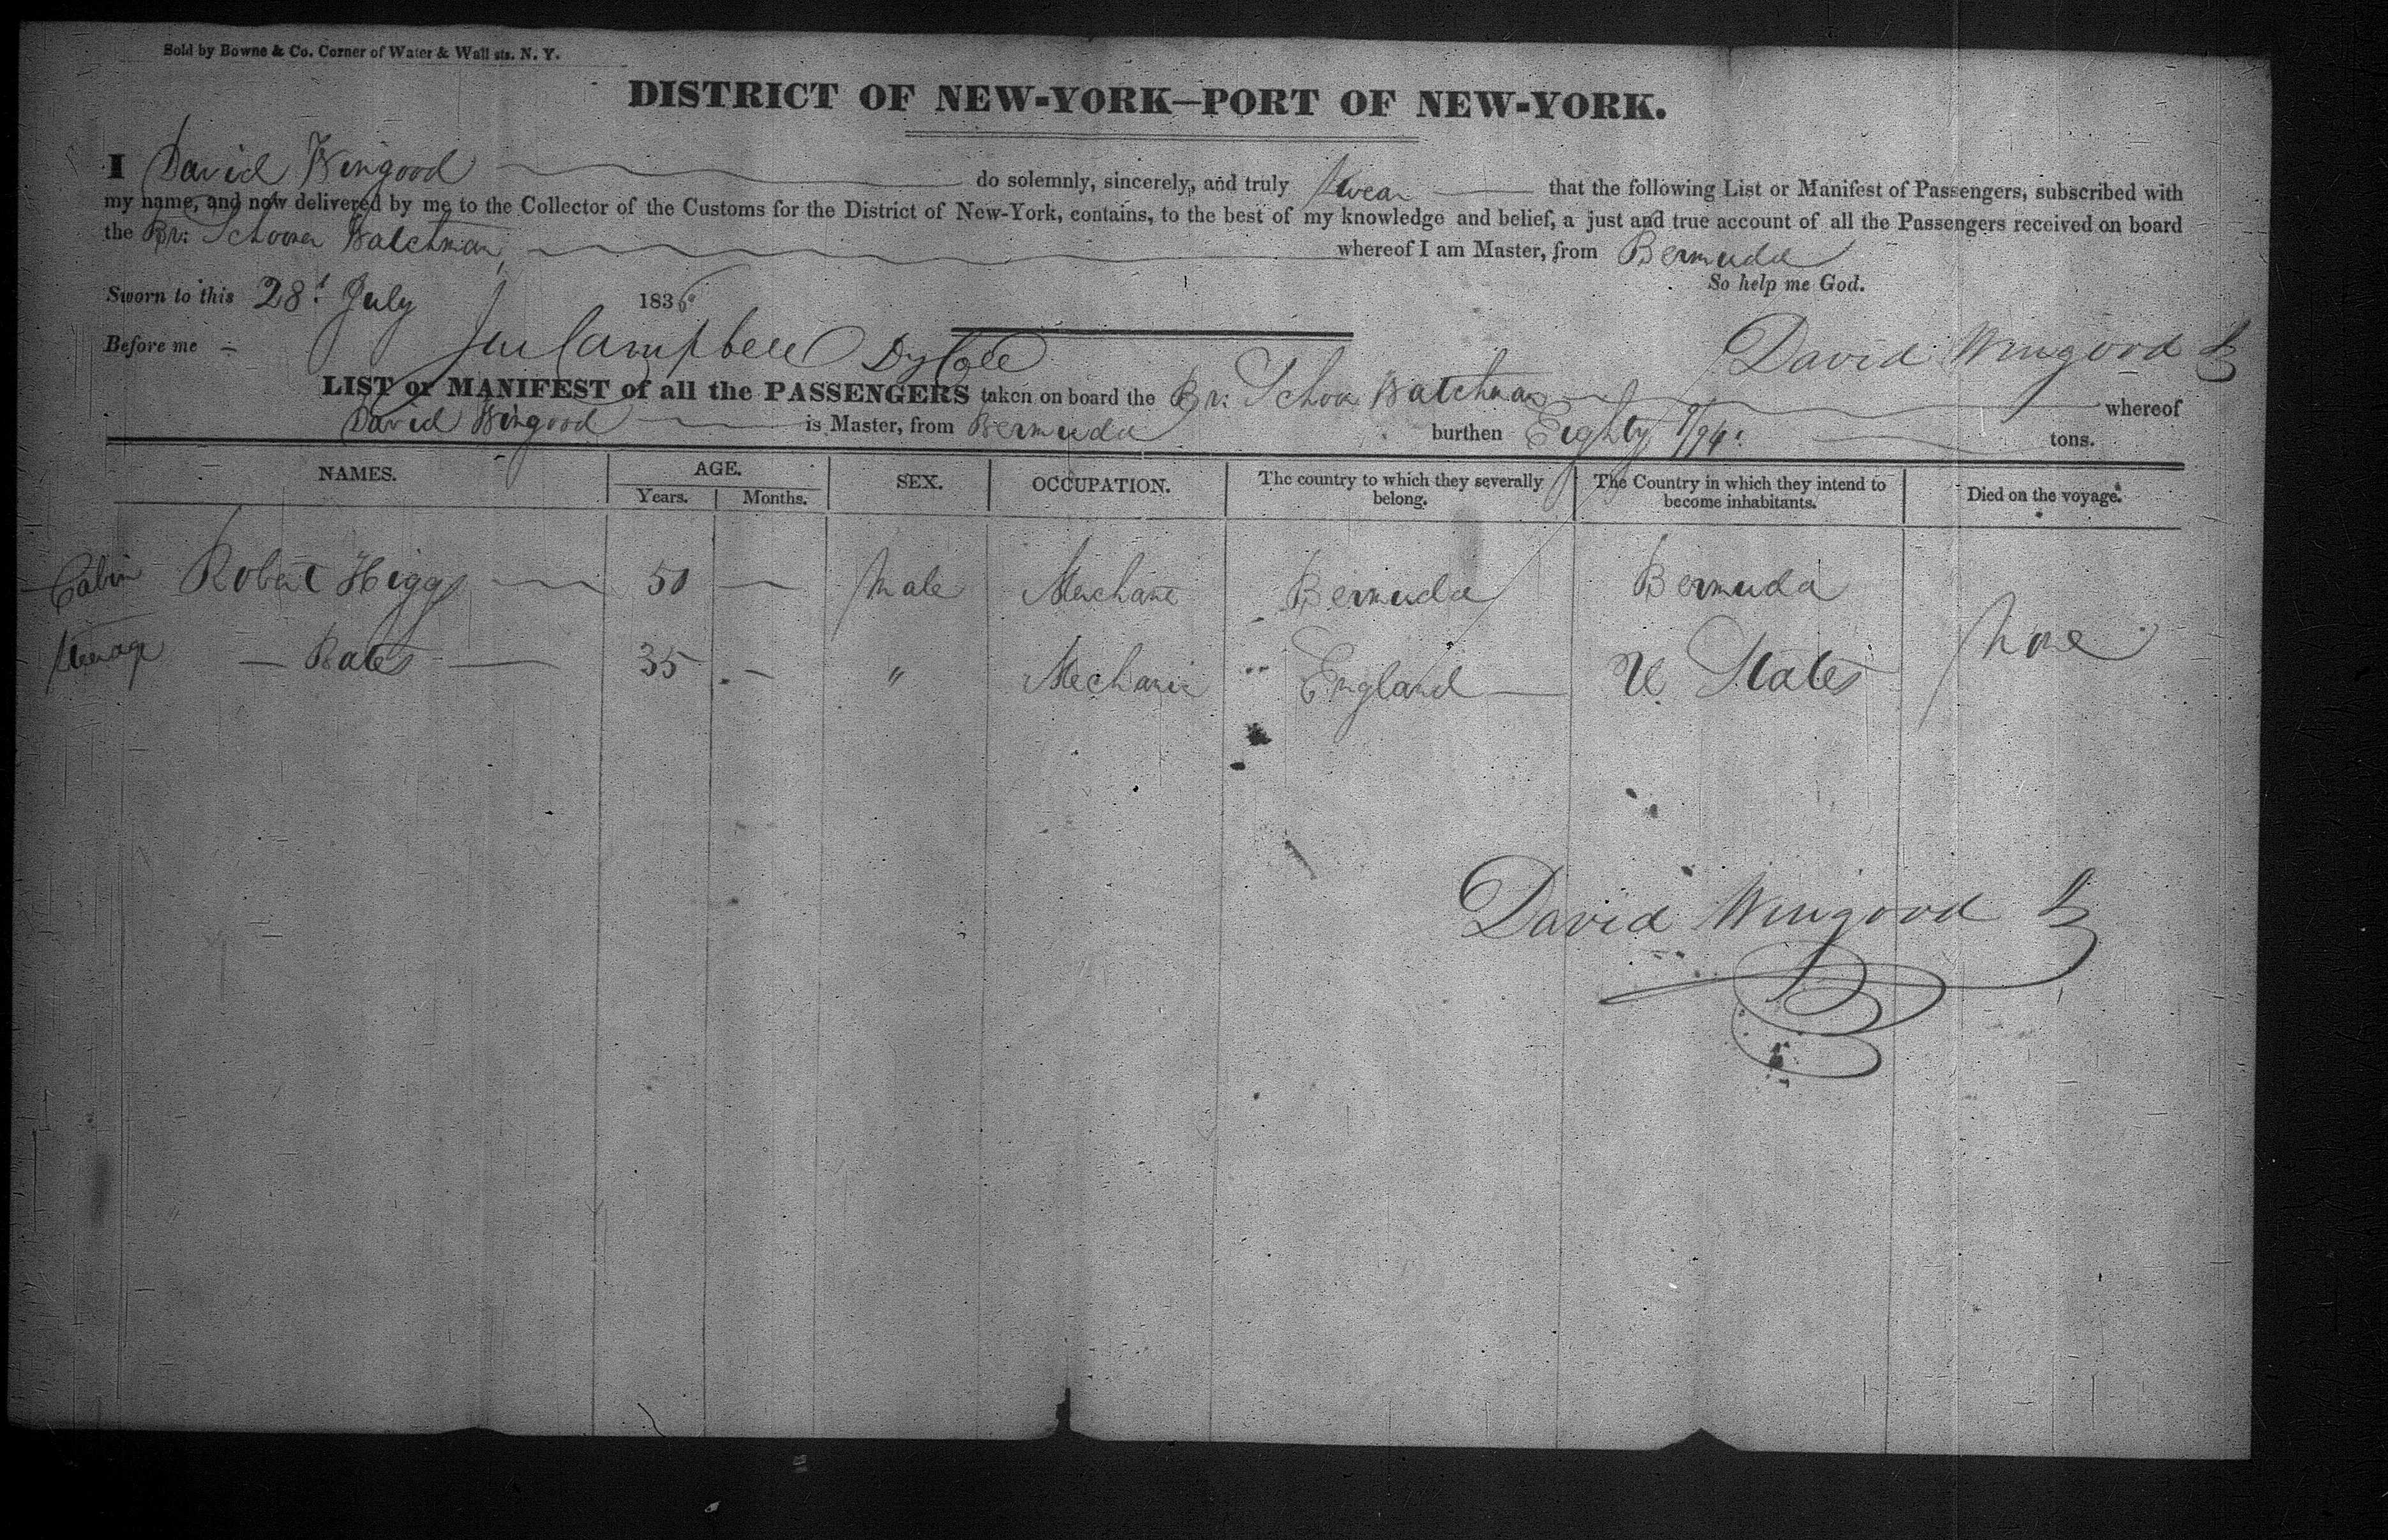 Sold by Bowne & Co. Corner of Water & Wall sts. N. Y.
DISTRICT OF NEW-YORK—PORT OF NEW-YORK.
I David Wingood do solemnly, sincerely, and truly swear that the following List or Manifest of Passengers, subscribed with
my name, and now delivered by me to the Collector of the Customs for the District of New-York, contains, to the best of my knowledge and belief, a just and true account of all the Passengers received on board
the Br: Schooner Watchman, whereof I am Master, from Bermuda
So help me God.
Sworn to this 28t July 1836
Before me Campbell Dy Coll David Wingood
LIST or MANIFEST of all the PASSENGERS taken on board the Br: Schor Watchman whereof
David Wingood is Master, from Bermuda burthen Eighty /94: tons.
NAMES. AGE. SEX. OCCUPATION. The country to which they severally belong. The Country in which they intend to become inhabitants. Died on the voyage.
Years. Months.
Cabin Robert Higgs — 50 — Male Merchant Bermuda Bermuda
Steerage — Bates — 35 — " Mechanic England — U States None
David Wingood